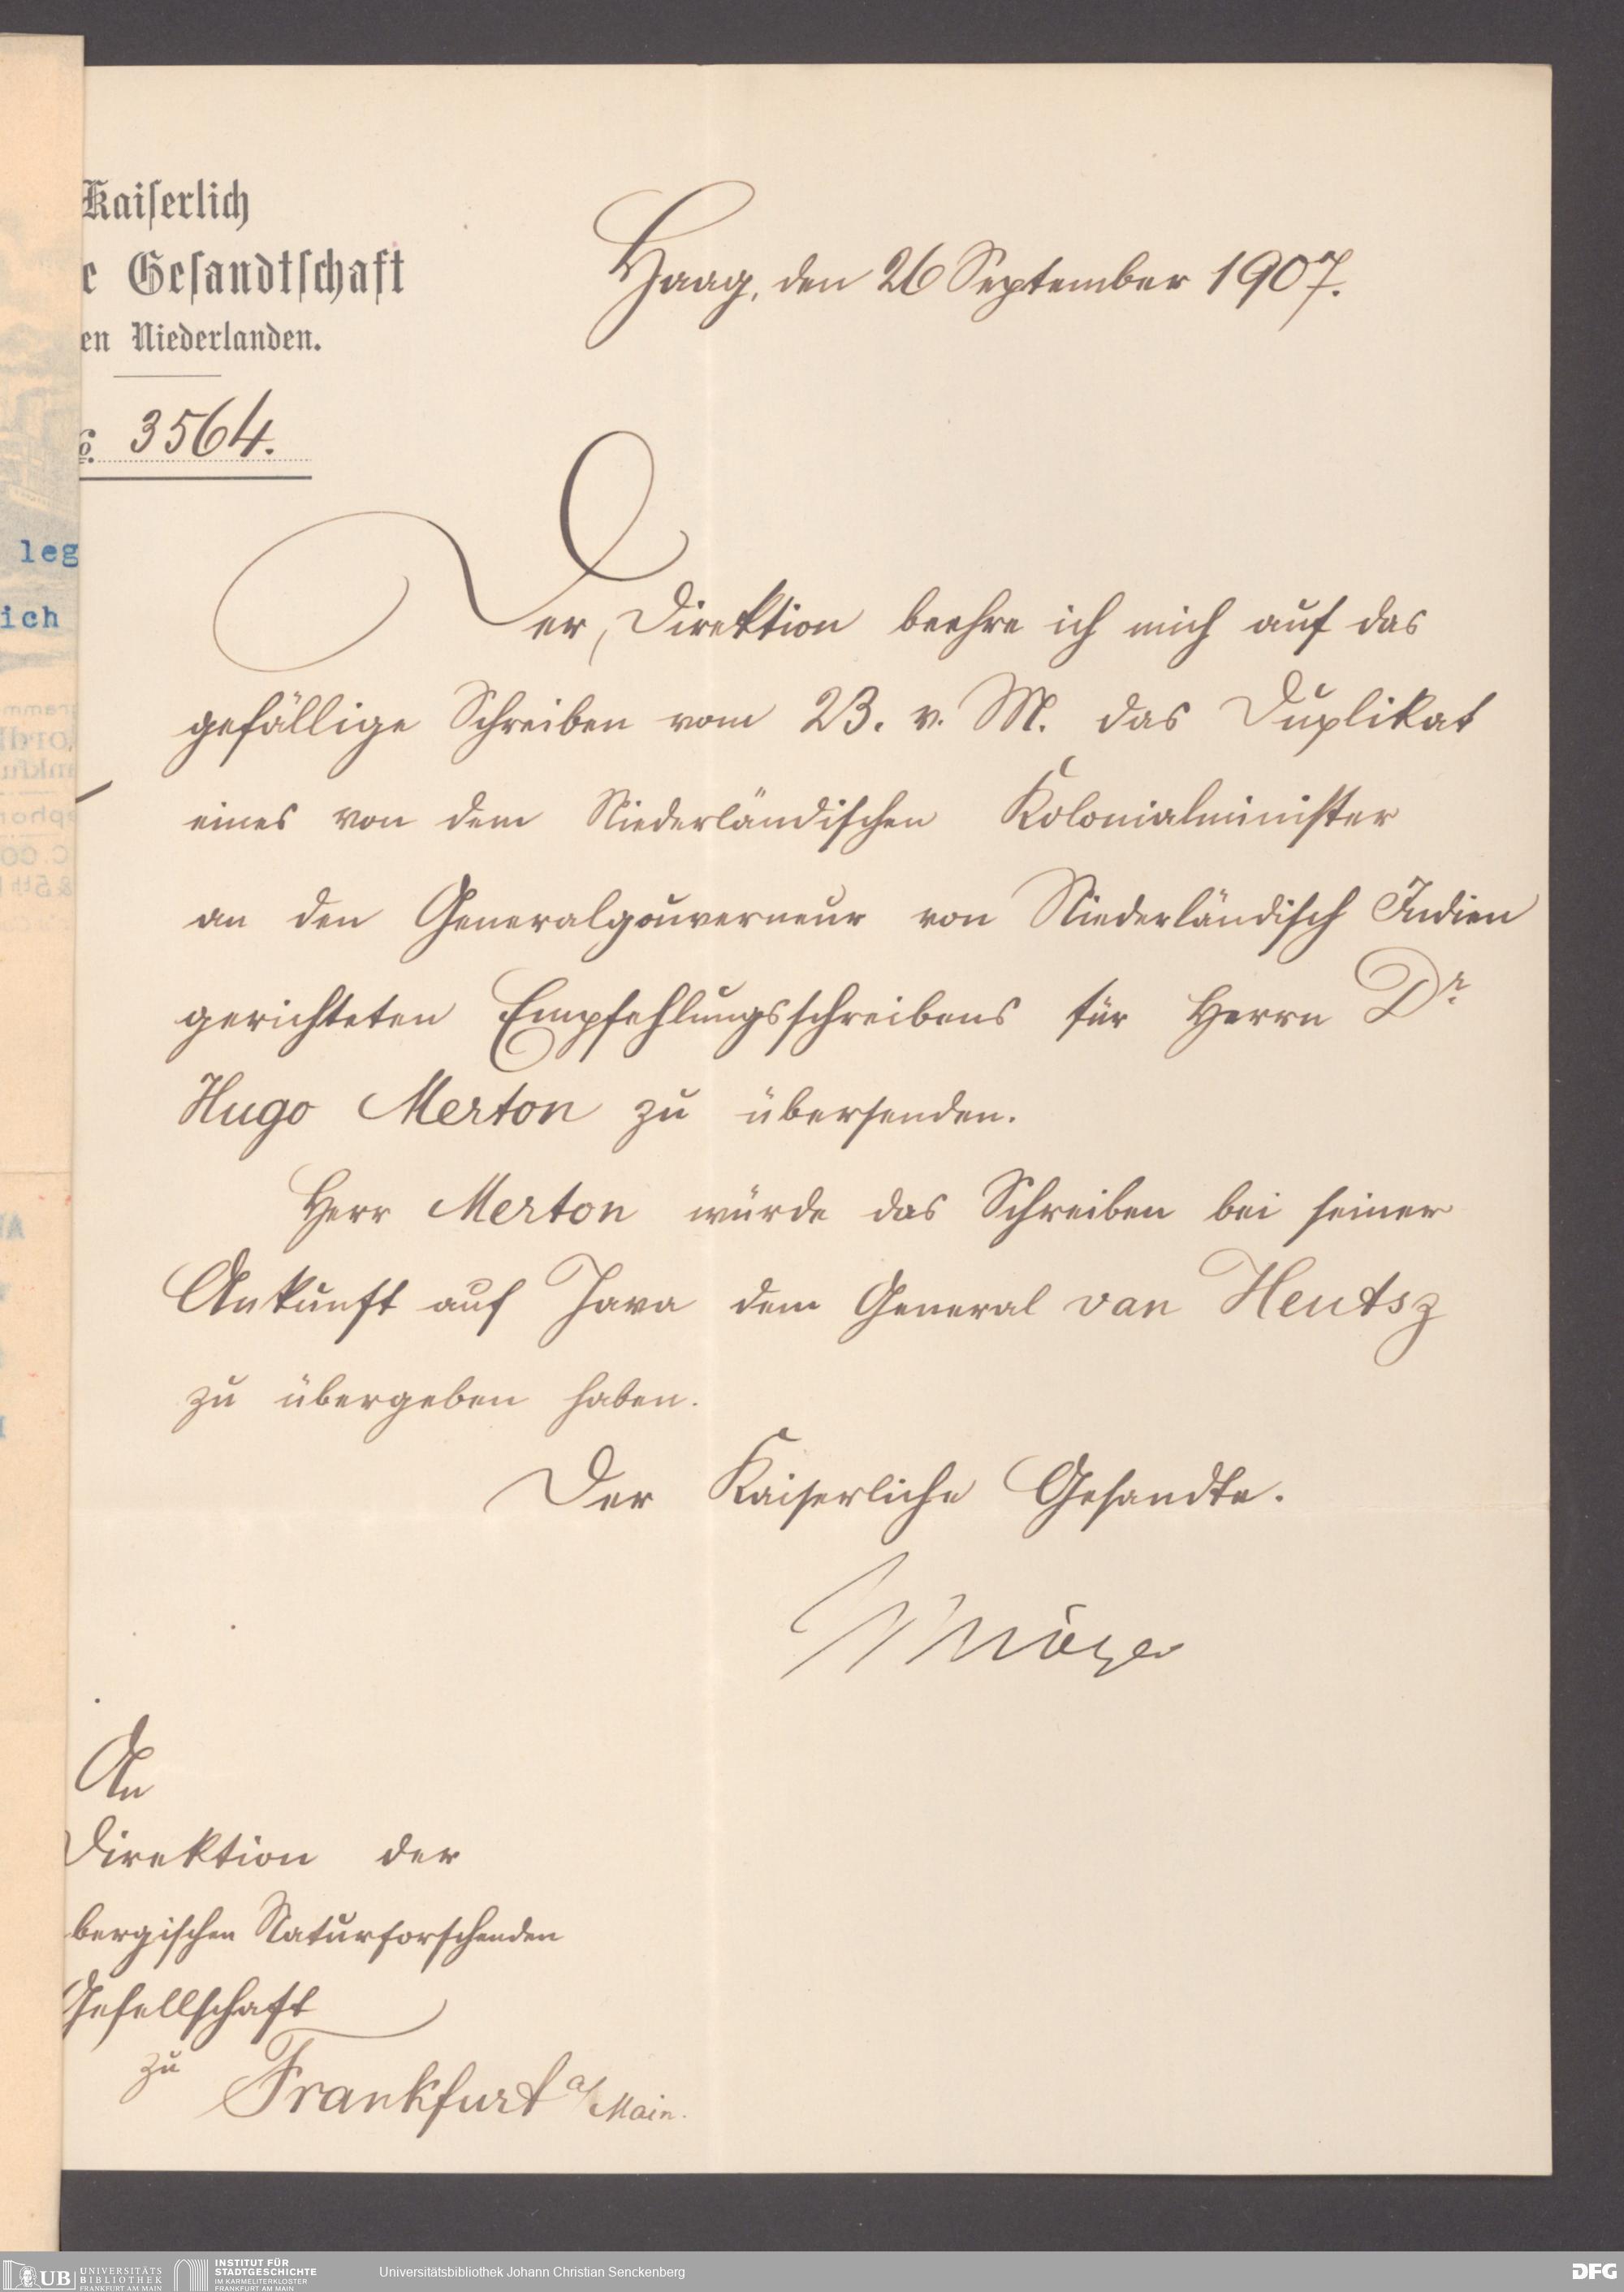 Kaiserlich
e Gesandtschaft
en Niederlanden.
o. 3564.
Haag, den 26 September 1907.
Der Direktion beehre ich mich auf das
gefällige Schreiben vom 23. v. M. das Duplikat
eines von dem Niederländischen Kolonialminister
an den Generalgouverneur von Niederländisch Indien
gerichteten Empfehlungsschreibens für Herrn Dr.
Hugo Merton zu übersenden.
Herr Merton würde das Schreiben bei seiner
Ankunft auf Java dem General van Heutsz
zu übergeben haben.
Der Kaiserliche Gesandte.
An
Direktion der
bergischen Naturforschenden
Gesellschaft
zu Frankfurt a/Main.
leg
ich
UB UNIVERSITÄTS
BIBLIOTHEK
FRANKFURT AM MAIN
INSTITUT FÜR
STADTGESCHICHTE
IM KARMELITERKLOSTER
FRANKFURT AM MAIN
Universitätsbibliothek Johann Christian Senckenberg
DFG